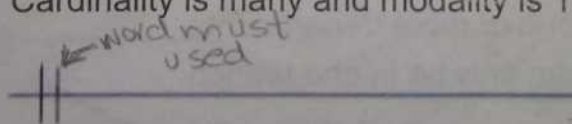 Cardinality is many and modality is 1
word must
used